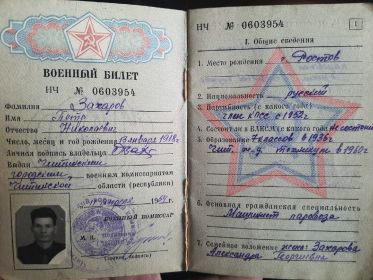 ВОЕННЫЙ БИЛЕТ
НЧ № 0603954
Фамилия Захаров
Имя Петр
Отчество Николаевич
Число, месяц и год рождения 13 января 1918 г.
Личная подпись владельца
Выдан Читинским
городским военным комиссариатом
Читинской области (республики)
ВОЕННЫЙ КОМИССАР
М. П.
НЧ № 0603954
1
I. Общие сведения
1. Место рождения г. Ростов
2. Национальность русский
3. Партийность (с какого года)
член КПСС с 1952 г.
4. Состоит ли в ВЛКСМ (с какого года) не состоит
5. Образование 7 классов в 1936 г.
Чит. ж.д. техникум в 1960 г.
6. Основная гражданская специальность
Машинист паровоза
7. Семейное положение жена: Захарова
Александра Георгиевна